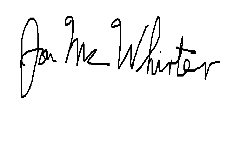 Jon McWhirter